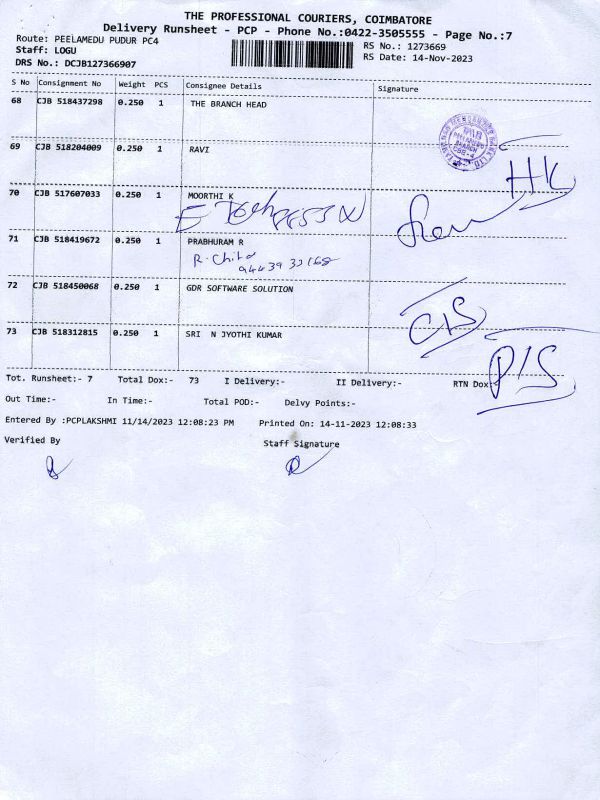 THE PROFESSIONAL COURIERS, COIMBATORE
Delivery Runsheet - PCP - Phone No.:0422-3505555 - Page No.:7
Route: PEELAMEDU PUDUR PC4
RS No.: 1273669
Staff: LOGU
RS Date: 14-Nov-2023
DRS No.: DCJB127366907
S No Consignment No Weight PCS Consignee Details Signature
68 CJB 518437298 0.250 1 THE BRANCH HEAD
69 CJB 518204009 0.250 1 RAVI
HK
70 CJB 517607033 0.250 1 MOORTHI K
71 CJB 518419672 0.250 1 PRABHURAM R
R. Chitra
72 CJB 518450068 0.250 1 GDR SOFTWARE SOLUTION
73 CJB 518312815 0.250 1 SRI N JYOTHI KUMAR
Tot. Runsheet:- 7 Total Dox:- 73 I Delivery:- II Delivery:- RTN Dox:
Out Time:- In Time:- Total POD:- Delvy Points:-
Entered By :PCPLAKSHMI 11/14/2023 12:08:23 PM Printed On: 14-11-2023 12:08:33
Verified By Staff Signature